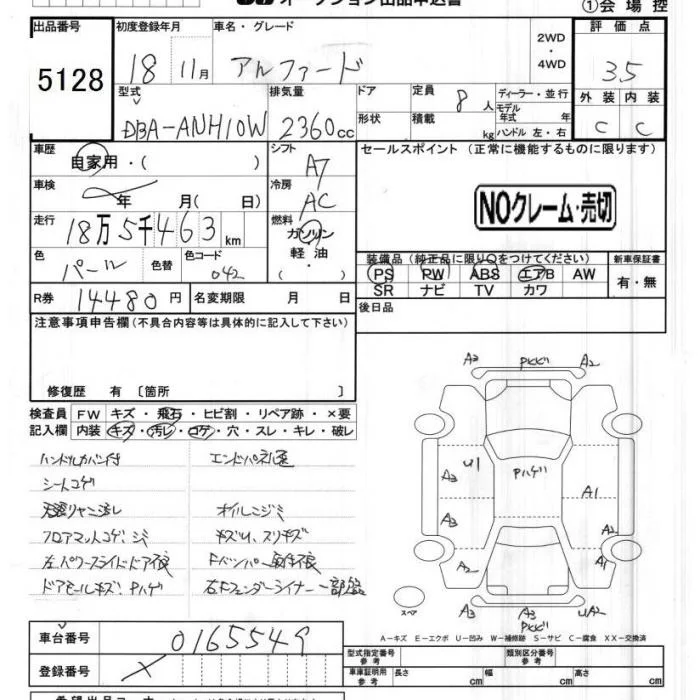 オークション出品申込書
①会場控
出品番号
5128
初度登録年月
18 11月
車名・グレード
アルファード
2WD
・
4WD
評価点
3.5
外装 内装
C C
型式
DBA-ANH10W
排気量
2360cc
ドア
形状
定員 8人
積載 kg
ディーラー・並行
モデル年式 年
ハンドル 左・右
車歴
自家用・( )
シフト
A7
セールスポイント (正常に機能するものに限ります)
NOクレーム・売切
車検
年 月( 日)
冷房
AC
走行
18万5千463km
燃料
ガソリン
軽油
・( )
色
パール
色替
色コード
042
装備品 (純正品に限り○をつけてください)
PS PW ABS エアB AW
SR ナビ TV カワ
新車保証書
有・無
R券 14480円
名変期限 月 日
後日品
注意事項申告欄 (不具合内容等は具体的に記入して下さい)
修復歴 有 〔箇所 〕
検査員 FW キズ・飛石・ヒビ割・リペア跡・×要
記入欄 内装 キズ・汚レ・コゲ・穴・スレ・キレ・破レ
ハンドルカバー付
シートコゲ
フロアマットコゲ、シミ
左パワースライドドア不良
ドアモールキズ、Pハゲ
オイルニジミ
キズ凹、スリキズ
Fバンパー取付不良
右Fフェンダーライナー一部欠
A3 PKビ A2
U1
Pハゲ
A3
A1
A3
A2
A2
A1
A3 A3 UA2
PKビ
スペア
A-キズ E-エクボ U-凹み W-補修跡 S-サビ C-腐食 XX-交換済
車台番号
0165549
登録番号
型式指定番号 参考
類別区分番号 参考
車庫証明用 参考 長さ cm 幅 cm 高さ cm